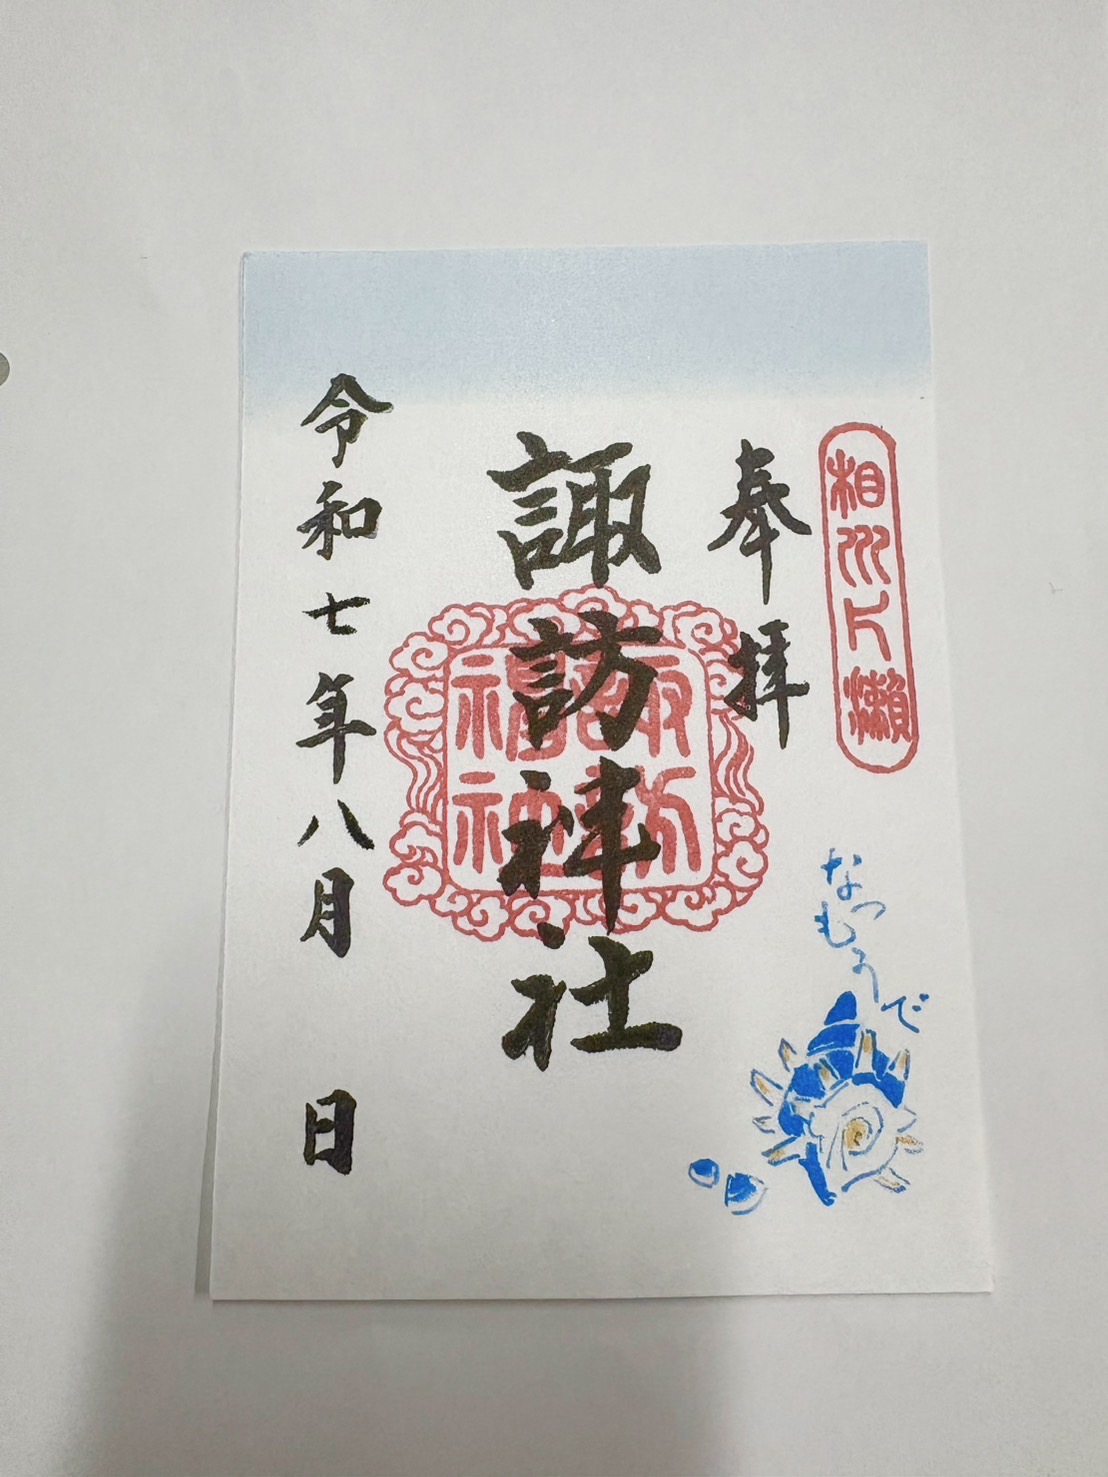 相州片瀬
奉拝
諏訪神社
令和七年八月　日
なつもうで